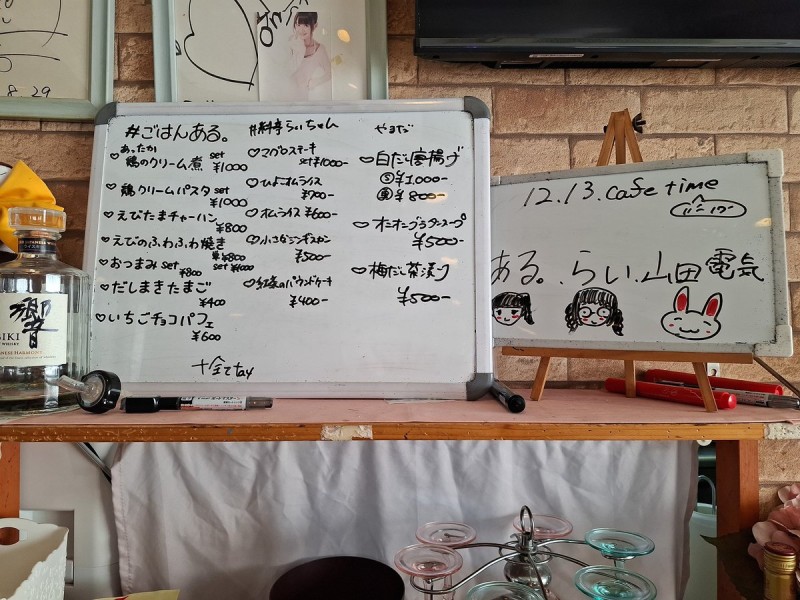 8.29
#ごはんある。
あったか
♡鶏のクリーム煮 set ¥1000
♡鶏クリームパスタ set
¥1000
♡えびたまチャーハン
¥800
♡えびのふわふわ焼き
¥800
♡おつまみ set set
¥800 ¥1000
♡だしまきたまご
¥400
♡いちごチョコパフェ
¥600
#料亭らいちゃん
♡マグロステーキ
set ¥1000-
♡ひよこオムライス
¥700-
♡オムライス ¥600-
♡小さなジンギスカン
¥500-
♡紅茶のパウンドケーキ
¥400-
やまだ
♡白だし唐揚げ
¥1,000-
¥800-
♡オニオングラタンスープ
¥5000-
♡梅だし茶漬け
¥500-
+全てtax
12.13.cafe time
ある。.らい.山田電気
響
WHISKY
HARMONY